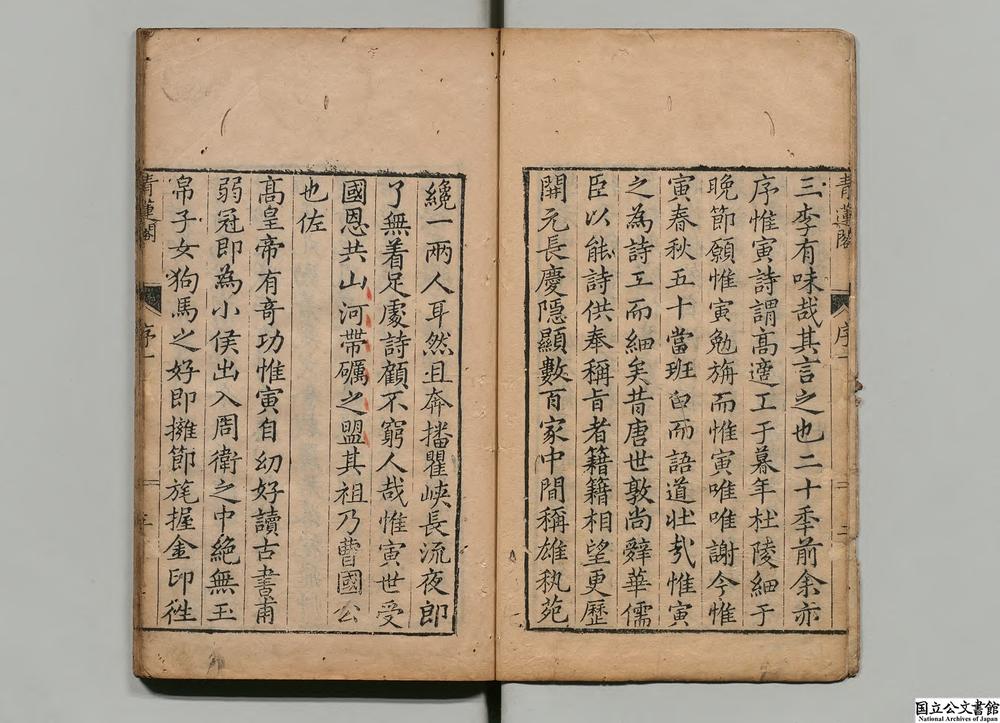 青蓮閣
序
二
三李有味哉其言之也二十季前余亦
序惟寅詩謂高適工于暮年杜陵細于
晚節願惟寅勉旃而惟寅唯唯謝今惟
寅春秋五十當班白而語道壯哉惟寅
之為詩工而細矣昔唐世敦尚辭華儒
臣以能詩供奉稱旨者籍籍相望更歷
開元長慶隱顯數百家中間稱雄執苑
纔一兩人耳然且奔播瞿峽長流夜郎
了無着足處詩顧不窮人哉惟寅世受
國恩共山河帶礪之盟其祖乃曹國公
也佐
高皇帝有奇功惟寅自幼好讀古書甫
弱冠即為小侯出入周衛之中絶無玉
帛子女狗馬之好即擁節旄握金印徃
青蓮閣
序
三
国立公文書館
National Archives of Japan